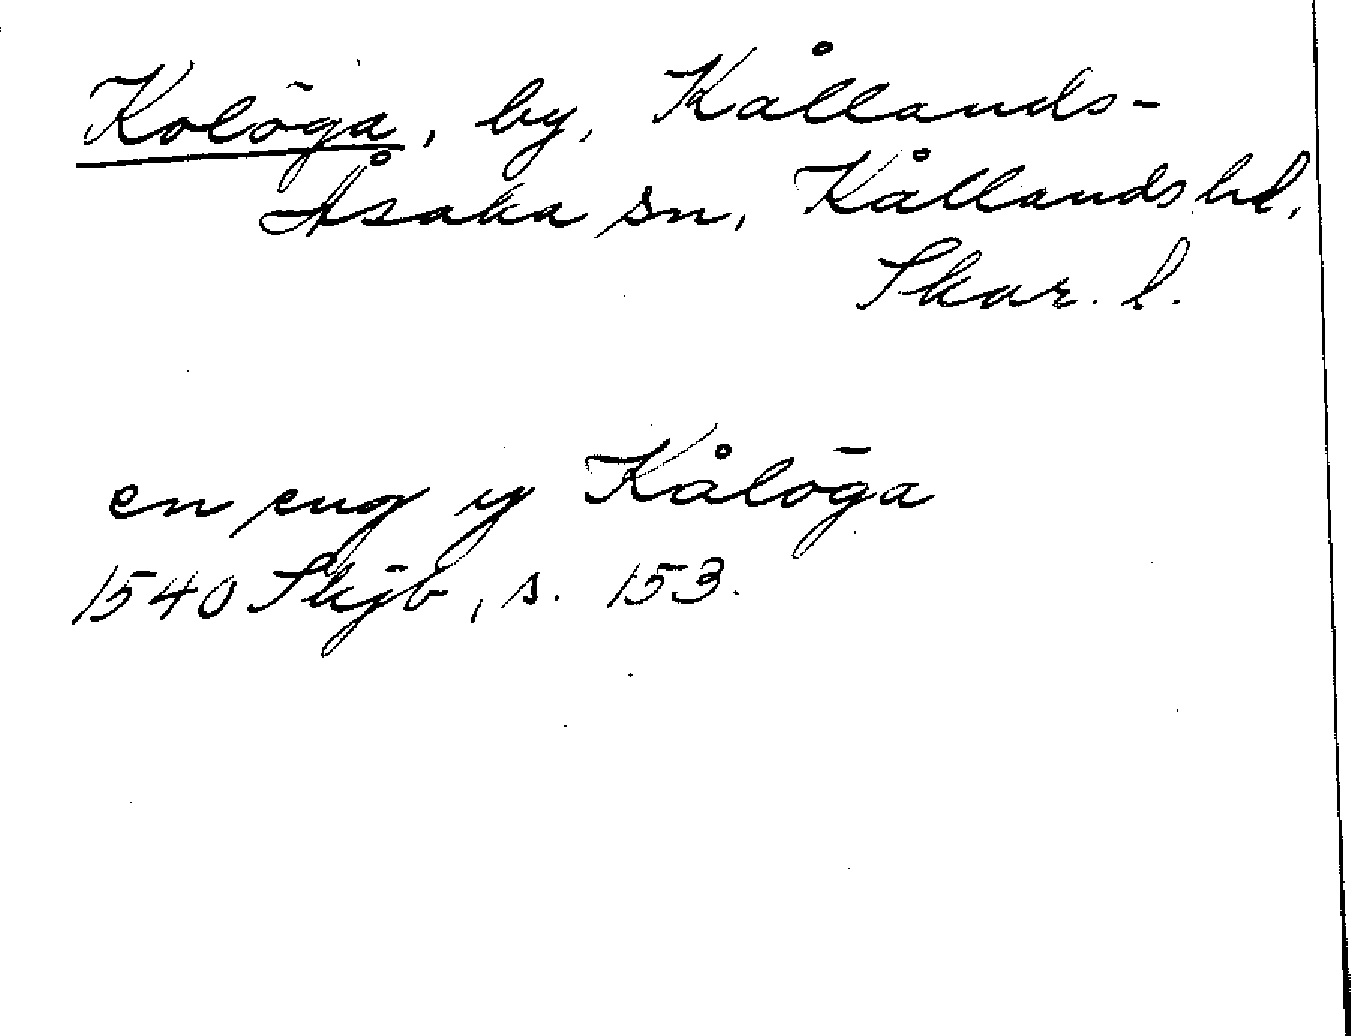 Kolöga, by, Kållands-
Åsaka sn, Kållands hd,
Skar. l.
en eng y Kålöga
1540 Skjb, s. 153.